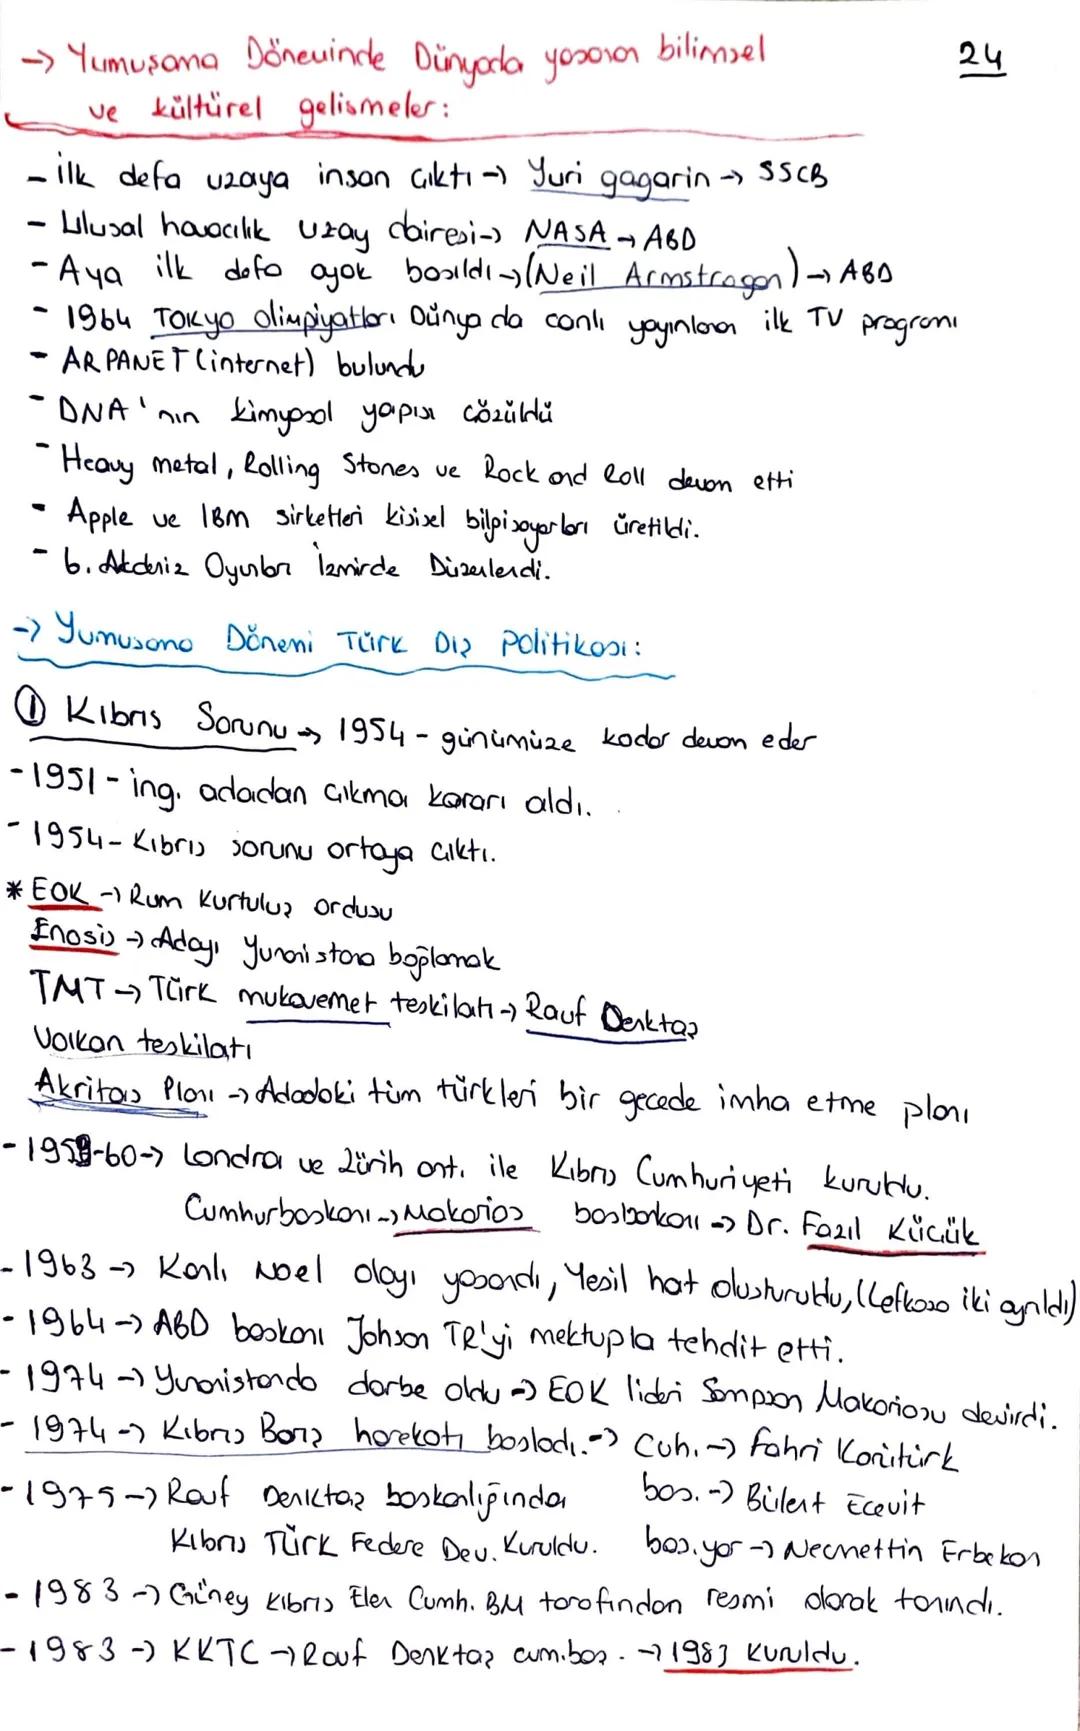 → Yumuşama Döneminde Dünyada yaşanan bilimsel
24
ve kültürel gelismeler:
- ilk defa uzaya insan çıktı → Yuri gagarin → SSCB
- Ulusal havacılık uzay dairesi → NASA → ABD
- Aya ilk defa ayak basıldı → (Neil Armstragon) → ABD
- 1964 TOKyo olimpiyatları Dünyada canlı yayınlanan ilk TV programı
- ARPANET (internet) bulundu
- DNA'nın kimyasal yapısı çözüldü
- Heavy metal, Rolling Stones ve Rock and Roll devam etti
- Apple ve IBM sirketleri kisisel bilgisayarları üretildi.
- 6. Akdeniz Oyunları İzmirde Düzenlendi.
→ Yumusama Dönemi Türk Dış Politikası:
① Kıbrıs Sorunu → 1954 - günümüze kadar devam eder
- 1951 - ing. adadan çıkma kararı aldı.
- 1954 - Kıbrıs sorunu ortaya çıktı.
* EOK → Rum Kurtuluş ordusu
Enosis → Adayı Yunanistana bağlamak
TMT → Türk mukavemet teskilatı → Rauf Denktaş
Volkan teskilatı
Akritas Planı → Adadaki tüm türkleri bir gecede imha etme planı
- 1959-60 → Londra ve Zürih ant. ile Kıbrıs Cumhuriyeti kuruldu.
Cumhurbaskanı → Makarios basbakanı → Dr. Fazıl Küçük
- 1963 → Kanlı Noel olayı yasandı, Yesil hat olusturuldu, (Lefkosa iki ayrıldı)
- 1964 → ABD baskanı Johson TR'yi mektupla tehdit etti.
- 1974 → Yunanistanda darbe oldu → EOK lideri Sampson Makariosu devirdi.
- 1974 → Kıbrıs Barış harekatı basladı. → Cuh. → Fahri Korutürk
- 1975 → Rauf Denktaş baskanlığında bas. → Bülent Ecevit
Kıbrıs Türk Federe Dev. Kuruldu. bas. yar → Necmettin Erbakan
- 1983 → Güney Kıbrıs Elen Cumh. BM tarafından resmi olarak tanındı.
- 1983 → KKTC → Rauf Denktaş cum.baş. → 1983 Kuruldu.